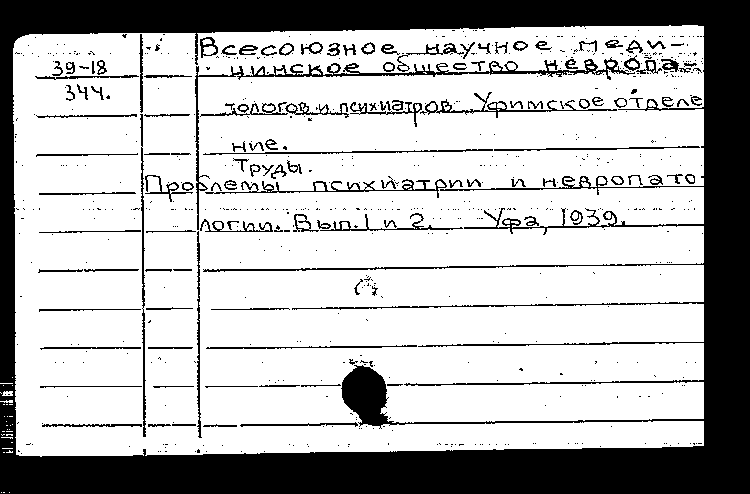 Всесоюзное научное меди-
39-18
цинское общество невропа-
344.
тологов и психиатров Уфимское отделе
ние.
Труды.
Проблемы психиатрии и невропато-
логии. Вып. 1 и 2. Уфа, 1939.